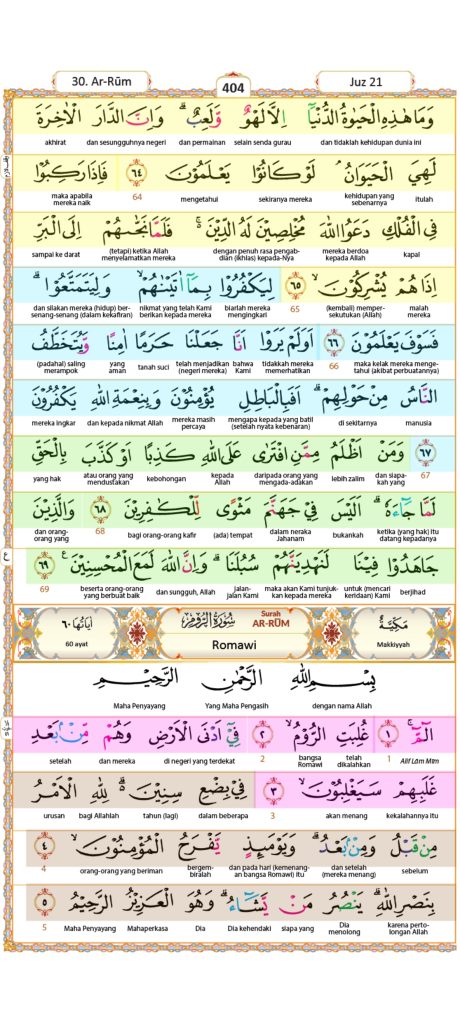 30. Ar-Rūm 404 Juz 21
وَمَا هٰذِهِ الْحَيٰوةُ الدُّنْيَآ اِلَّا لَهْوٌ وَّلَعِبٌۗ وَاِنَّ الدَّارَ الْاٰخِرَةَ
dan tidaklah kehidupan dunia ini selain senda gurau dan permainan dan sesungguhnya negeri akhirat
لَهِيَ الْحَيَوَانُۘ لَوْ كَانُوْا يَعْلَمُوْنَ ٦٤ فَاِذَا رَكِبُوْا
itulah kehidupan yang sebenarnya sekiranya mereka mengetahui 64 maka apabila mereka naik
فِى الْفُلْكِ دَعَوُا اللّٰهَ مُخْلِصِيْنَ لَهُ الدِّيْنَ ەۚ فَلَمَّا نَجّٰىهُمْ اِلَى الْبَرِّ
kapal mereka berdoa kepada Allah dengan penuh rasa pengabdian (ikhlas) kepada-Nya (tetapi) ketika Allah menyelamatkan mereka sampai ke darat
اِذَا هُمْ يُشْرِكُوْنَۙ ٦٥ لِيَكْفُرُوْا بِمَآ اٰتَيْنٰهُمْۙ وَلِيَتَمَتَّعُوْاۗ
malah mereka (kembali) mempersekutukan (Allah) 65 biarlah mereka mengingkari nikmat yang telah Kami berikan kepada mereka dan silakan mereka (hidup) bersenang-senang (dalam kekafiran)
فَسَوْفَ يَعْلَمُوْنَ ٦٦ اَوَلَمْ يَرَوْا اَنَّا جَعَلْنَا حَرَمًا اٰمِنًا وَّيُتَخَطَّفُ
maka kelak mereka mengetahui (akibat perbuatannya) 66 tidakkah mereka memerhatikan bahwa Kami telah menjadikan (negeri mereka) tanah suci yang aman (padahal) saling merampok
النَّاسُ مِنْ حَوْلِهِمْۗ اَفَبِالْبَاطِلِ يُؤْمِنُوْنَ وَبِنِعْمَةِ اللّٰهِ يَكْفُرُوْنَ
manusia di sekitarnya mengapa kepada yang batil (setelah nyata kebenaran) mereka masih percaya dan kepada nikmat Allah mereka ingkar
٦٧ وَمَنْ اَظْلَمُ مِمَّنِ افْتَرٰى عَلَى اللّٰهِ كَذِبًا اَوْ كَذَّبَ بِالْحَقِّ
67 dan siapakah yang lebih zalim daripada orang yang mengada-adakan kepada Allah kebohongan atau orang yang mendustakan yang hak
لَمَّا جَاۤءَهٗۗ اَلَيْسَ فِيْ جَهَنَّمَ مَثْوًى لِّلْكٰفِرِيْنَ ٦٨ وَالَّذِيْنَ
ketika (yang hak) itu datang kepadanya bukankah dalam neraka Jahanam (ada) tempat bagi orang-orang kafir 68 dan orang-orang yang
جَاهَدُوْا فِيْنَا لَنَهْدِيَنَّهُمْ سُبُلَنَاۗ وَاِنَّ اللّٰهَ لَمَعَ الْمُحْسِنِيْنَ ࣖ ٦٩
berjihad untuk (mencari keridaan) Kami maka akan Kami tunjukkan kepada mereka jalan-jalan Kami dan sungguh, Allah beserta orang-orang yang berbuat baik 69
مَكِّيَّةٌ Surah AR-RŪM سُوْرَةُ الرُّوْمِ اٰيَاتُهَا ٦٠
Makkiyyah Romawi 60 ayat
بِسْمِ اللّٰهِ الرَّحْمٰنِ الرَّحِيْمِ
dengan nama Allah Yang Maha Pengasih Maha Penyayang
الۤمّۤ ۚ ١ غُلِبَتِ الرُّوْمُۙ ٢ فِيْٓ اَدْنَى الْاَرْضِ وَهُمْ مِّنْۢ بَعْدِ
Alif Lām Mīm 1 telah dikalahkan bangsa Romawi 2 di negeri yang terdekat dan mereka setelah
غَلَبِهِمْ سَيَغْلِبُوْنَۙ ٣ فِيْ بِضْعِ سِنِيْنَ ەۗ لِلّٰهِ الْاَمْرُ
kekalahannya itu akan menang 3 dalam beberapa tahun (lagi) bagi Allahlah urusan
مِنْ قَبْلُ وَمِنْۢ بَعْدُۗ وَيَوْمَىِٕذٍ يَّفْرَحُ الْمُؤْمِنُوْنَۙ ٤
sebelum dan setelah (mereka menang) dan pada hari (kemenangan bangsa Romawi) itu bergembiralah orang-orang yang beriman 4
بِنَصْرِ اللّٰهِۗ يَنْصُرُ مَنْ يَّشَاۤءُۗ وَهُوَ الْعَزِيْزُ الرَّحِيْمُ ٥
karena pertolongan Allah Dia menolong siapa yang Dia kehendaki Dia Mahaperkasa Maha Penyayang 5